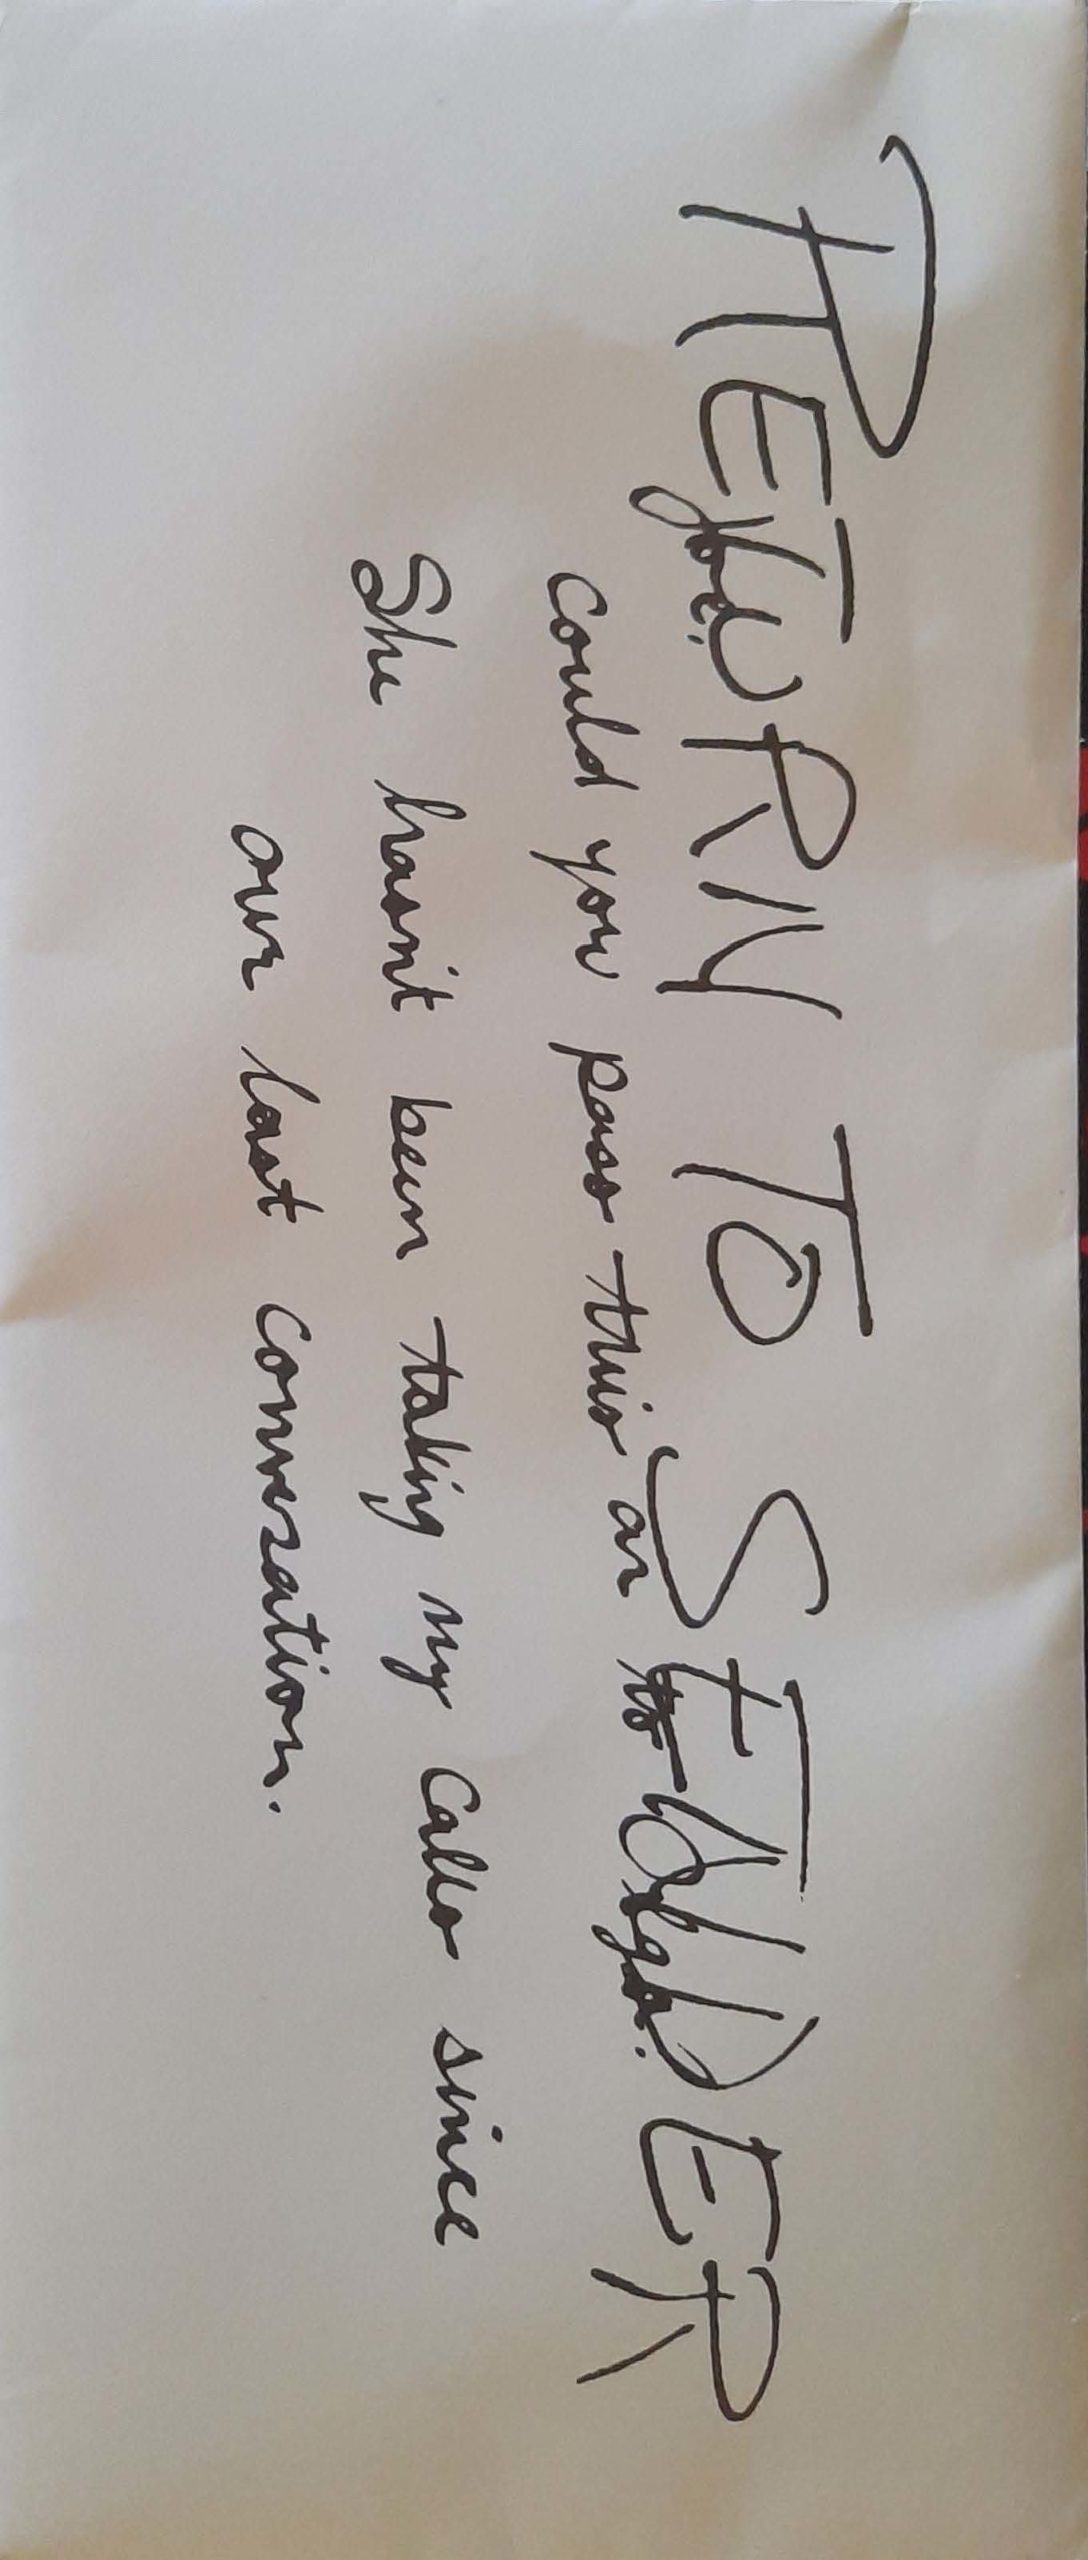 RETURN TO SENDER
Could you pass this on to Olga.
She hasn't been taking my calls since
our last conversation.